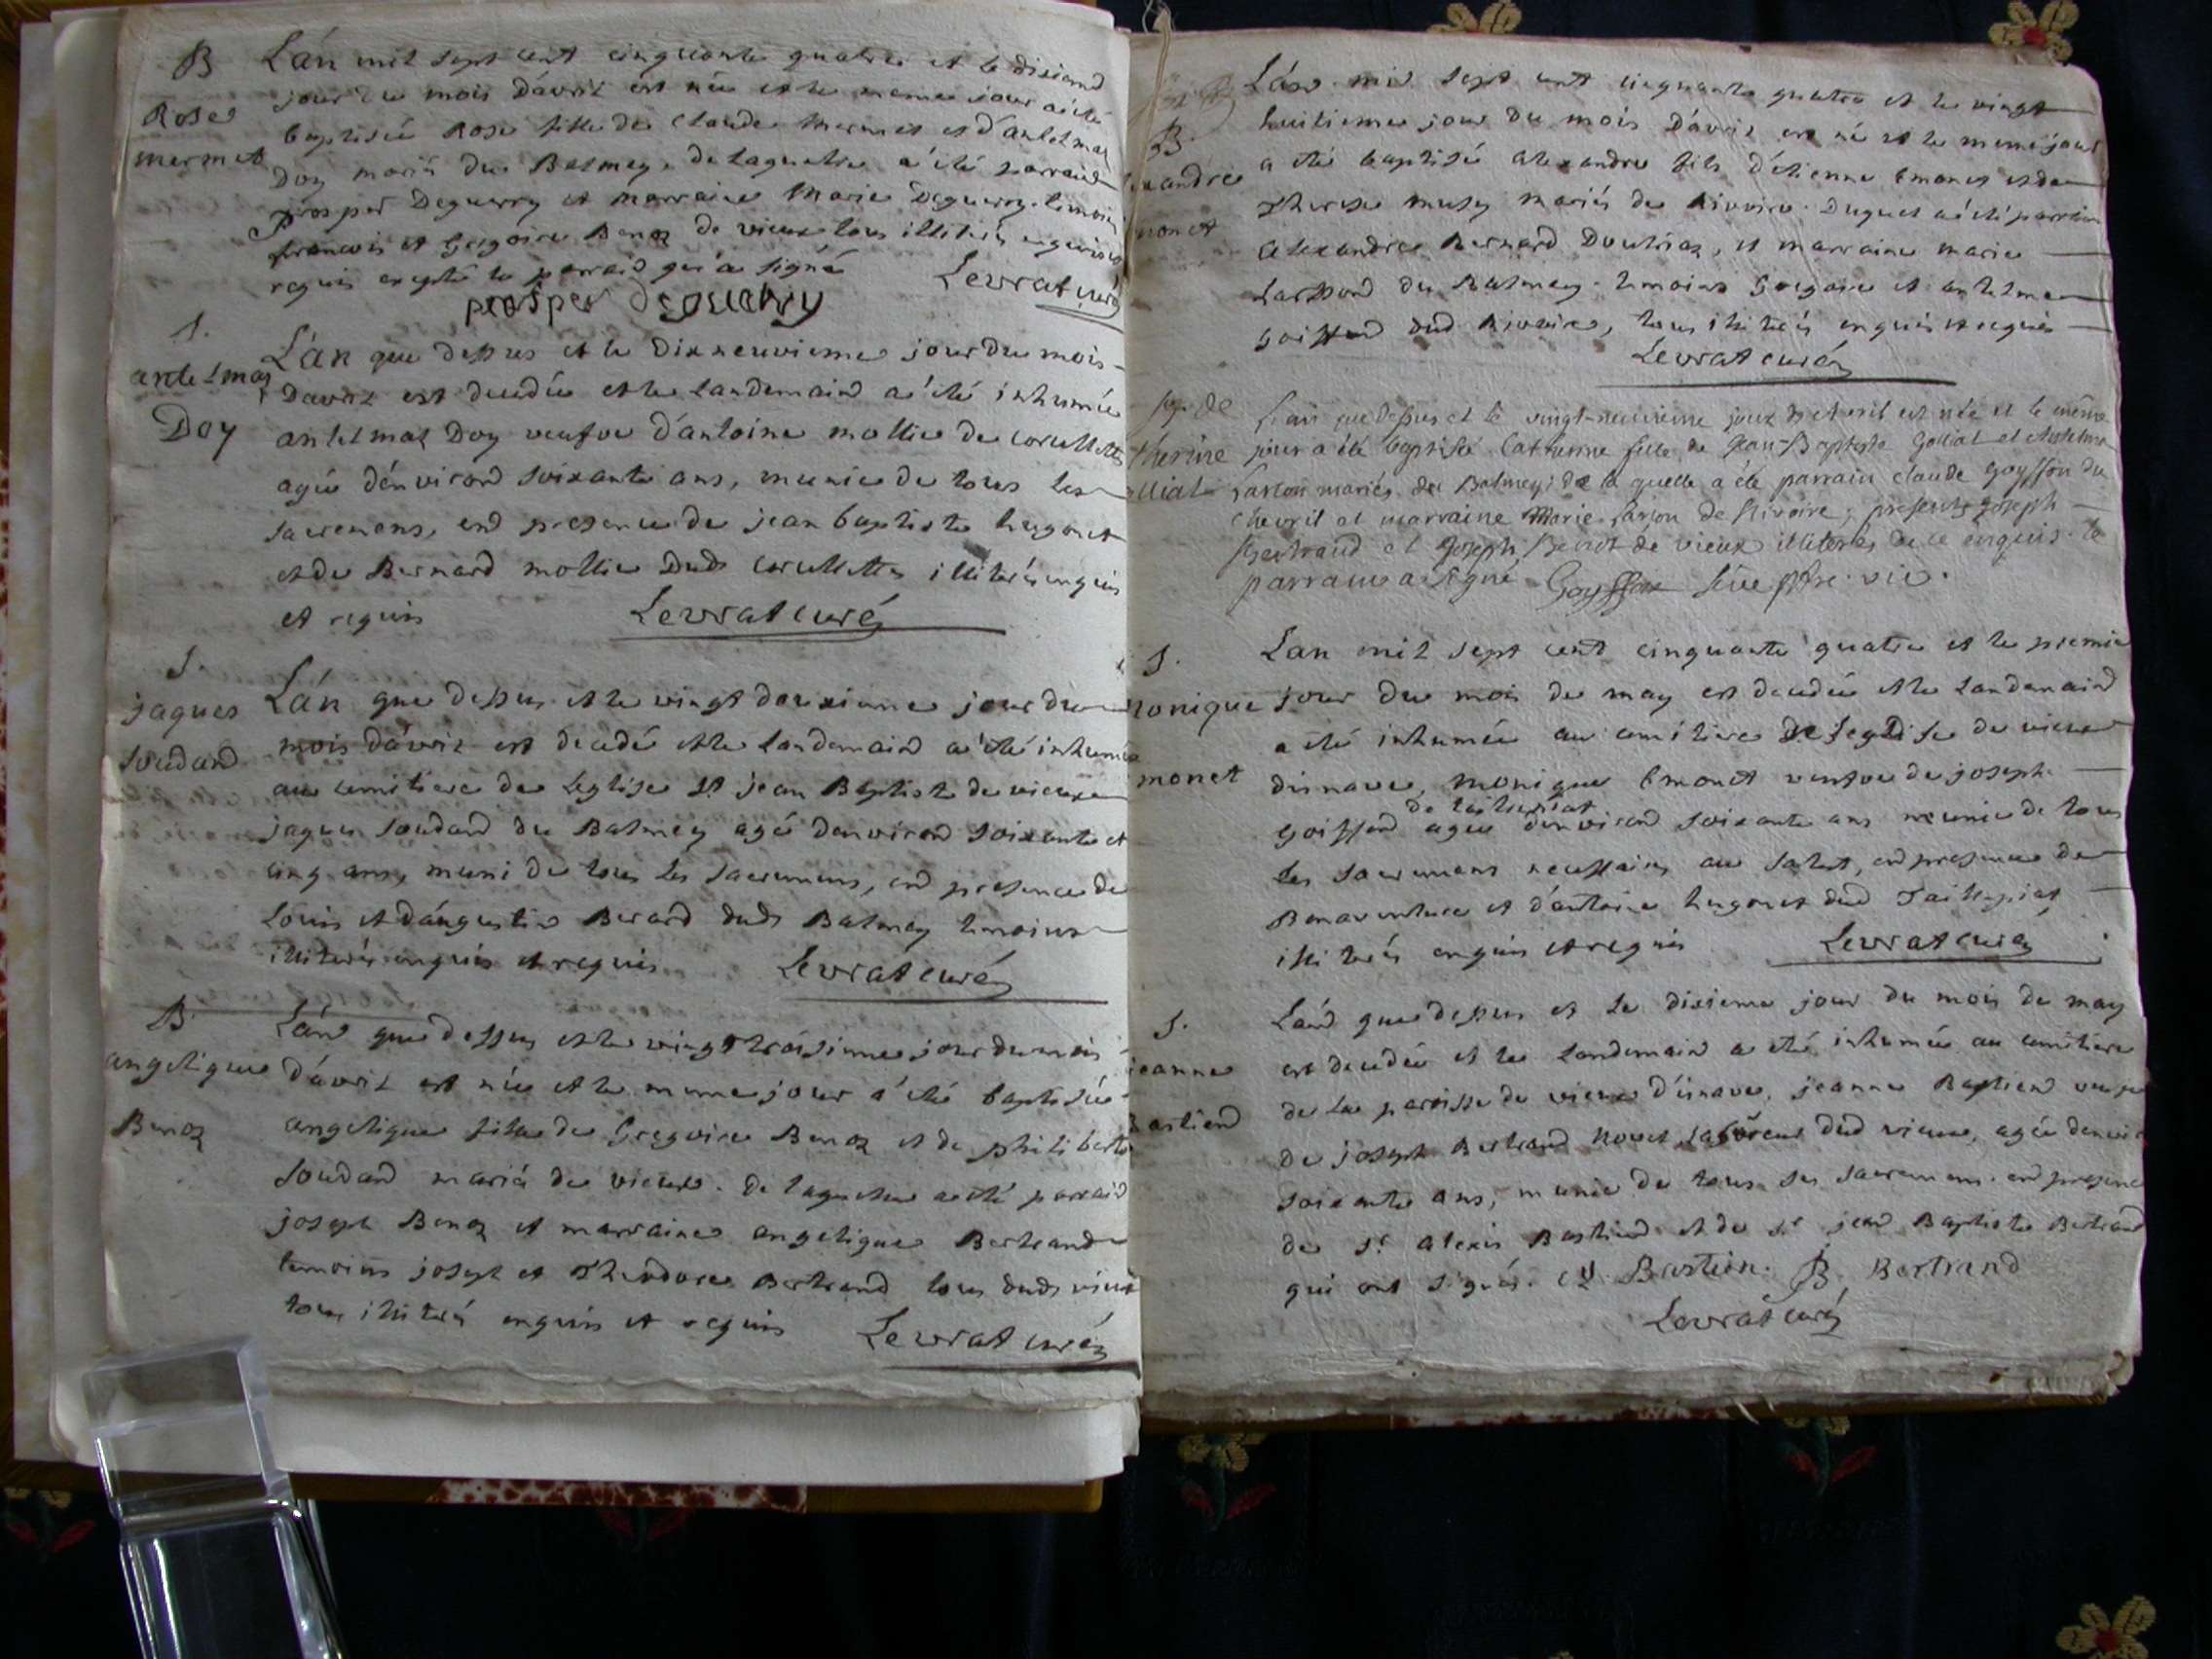 B
Rose
mermet
Lán mil sept cent cinquante quatre et le dixiemd
jour du mois Dávril est née et le meme jour a été
baptisée Rose fille de Claude mermet et d'antelmaz
Doy mariés du Balmey. de laquelle a été parraid
prosper Deguerry et marraine Marie Deguerry. temoins
francois et Gregoire Benoz de vieux tous illiterés enquis et
requis excepté le parraid qui a signé Levrat curé
prosper deguerry
S.
antelmaz
Doy
Lán que dessus et le dixneuvieme jour du mois
Davril est decedée et le landemaind a été inhumée
antelmaz Doy veufve d'antoine mollie de corcellette
agée dénvirond soixante ans, munie de tous les
sacremens, end presence de jean baptiste hugonet
et de Bernard mollie dudt corcellettes illiterés enquis
et requis Levrat curé
S.
jaques
soudand
Lán que dessus et le vingt deuxieme jour du
mois dávril est decedé et le landemaind a été inhumé
au cemitiere de Leglise St jean Baptiste de vieux
jaques soudand du Balmey agé denvirond soixante et
cinq ans, muni de tous les sacremens, end presence de
Louis et dáugustin Berard dudt Balmey temoins
illiterés enquis et requis Levrat curé
B.
angelique
Benoz
Lánd que dessus et le vingt troisieme jour du mois
dávril est née et le meme jour a été baptisée
angelique fille de Gregoire Benoz et de philiberte
soudand mariés de vieux. de laquelle a été parraid
joseph Benoz et marraine angelique Bertrand
temoins joseph et Theodore Bertrand tous dudt vieux
tous illiterés enquis et requis Levrat curé
B.
exandre
monet
Lánd mil sept cent cinquante quatre et le vingt
huitieme jour du mois Dávril est né et le meme jour
a été baptisé alexandre fils d'étienne Emonet et de
Therese musy mariés de Rivoire. Duquel a été parrain
alexandre Bernard Doutriaz, et marraine marie
du Balmey. temoins Gregoire et antelme
goissond dud Rivoire, tous illiterés enquis et requis
Levrat curé
therine
lliat
L'an que dessus et le vingt-neuvieme jour d'Avril est née et le même
jour a été baptisée Catherine fille de Jean-Baptiste Golliat et Anthelme
mariés du Balmey; de la quelle a été parrain claude goyffon du
chevril et marraine Marie de Rivoire; presents Joseph
Bertrand et Joseph Benoz de vieux illiterés de ce enquis. le
parrain a signé Goyffon ptre. vic.
S.
monique
monet
Lan mil sept cent cinquante quatre et le premie
jour du mois de may est decedée et le landemaind
a été inhumée au cemitiere de leglise de vieux
disnave, monique Emonet veufve de joseph
Goiffond de taillepiat agée denvirond soixante ans munie de tous
les sacremens necessaires au salut, end presence de
Bonaventure et d'antoine hugonet dud Taillepiat
illiterés enquis et requis Levrat curé
S.
jeanne
Bastiend
Lánd que dessus et le dixieme jour du mois de may
est decedée et le landemaind a été inhumée au cemitiere
de la paroisse de vieux d'isnave, jeanne Bastiend veufve
de joseph Bertrand dud vieux, agée denviro
soixante ans, munie de tous ses sacremens. end presence
de Sr alexis Bastiend et de Sr jean Baptiste Bertrand
qui ont signés. Bastien. JB. Bertrand
Levrat curé